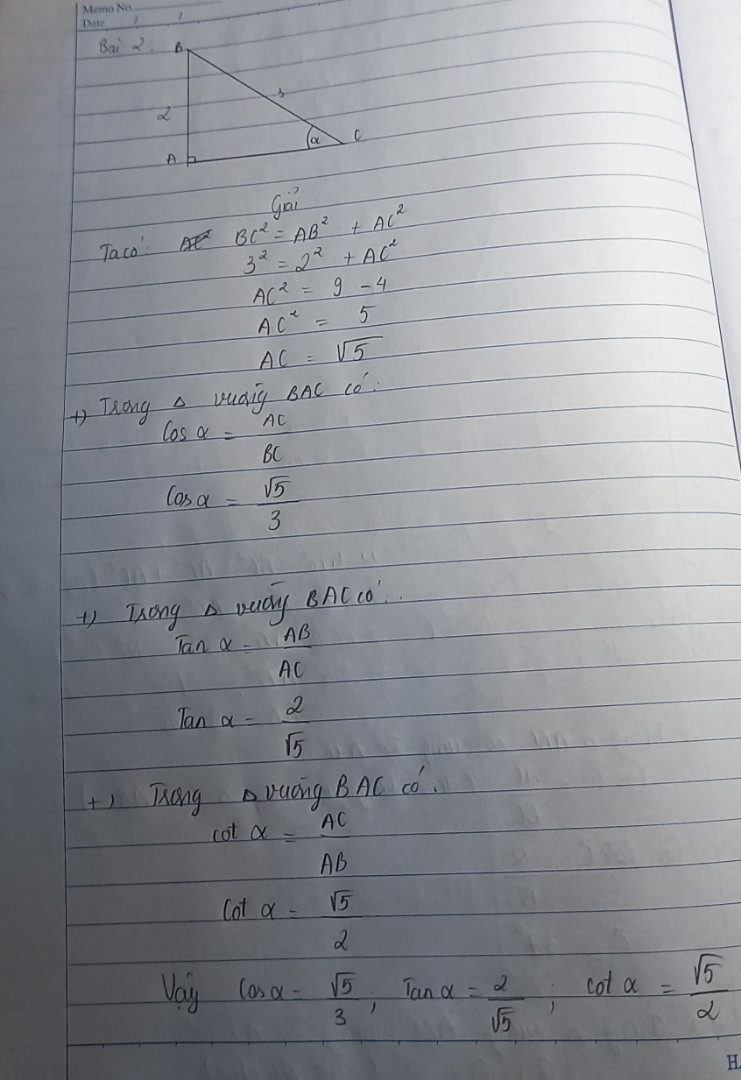 Memo No.
Date / /
Bài 2.
B
2
3
A
α
C
Giải
Ta có: BC² = AB² + AC²
3² = 2² + AC²
AC² = 9 - 4
AC² = 5
AC = √5
+) Trong Δ vuông BAC có:
Cos α = AC
BC
Cos α = √5
3
+) Trong Δ vuông BAC có:
Tan α = AB
AC
Tan α = 2
√5
+) Trong Δ vuông BAC có.
cot α = AC
AB
Cot α = √5
2
Vậy Cos α = √5/3; Tan α = 2/√5; cot α = √5/2